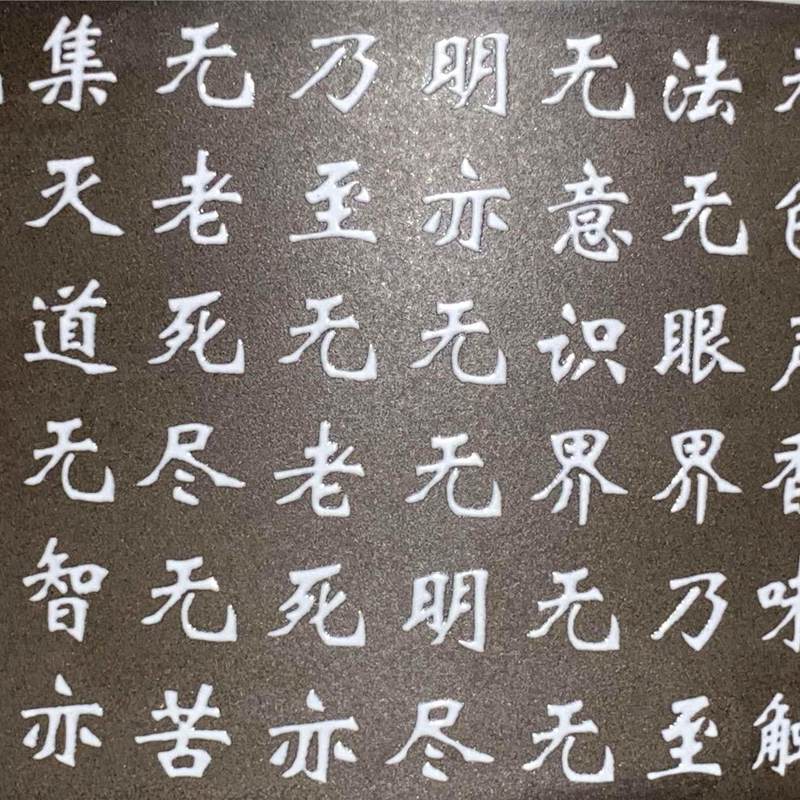 无色声香味触
法无眼界乃至
无意识界无无
明亦无无明尽
乃至无老死亦
无老死尽无苦
集灭道无智亦